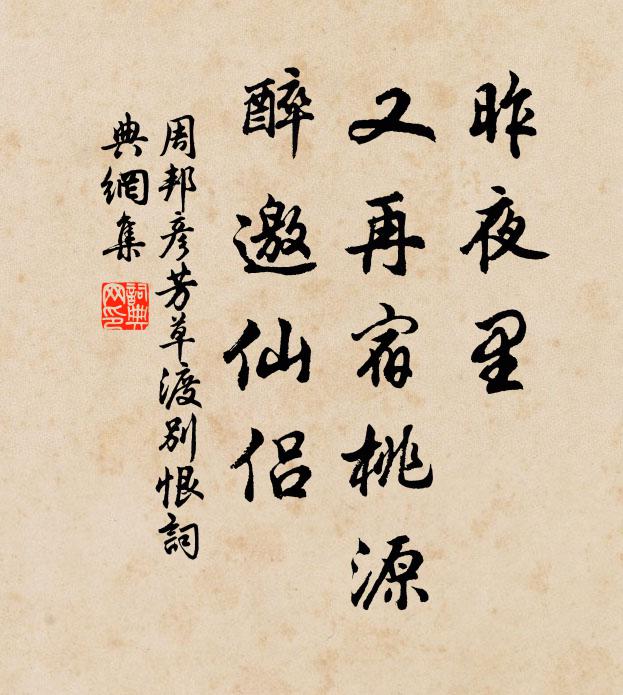 昨夜里
又再宿桃源
醉邀仙侣
周邦彦芳草渡别恨詞
典網集
詞典網印